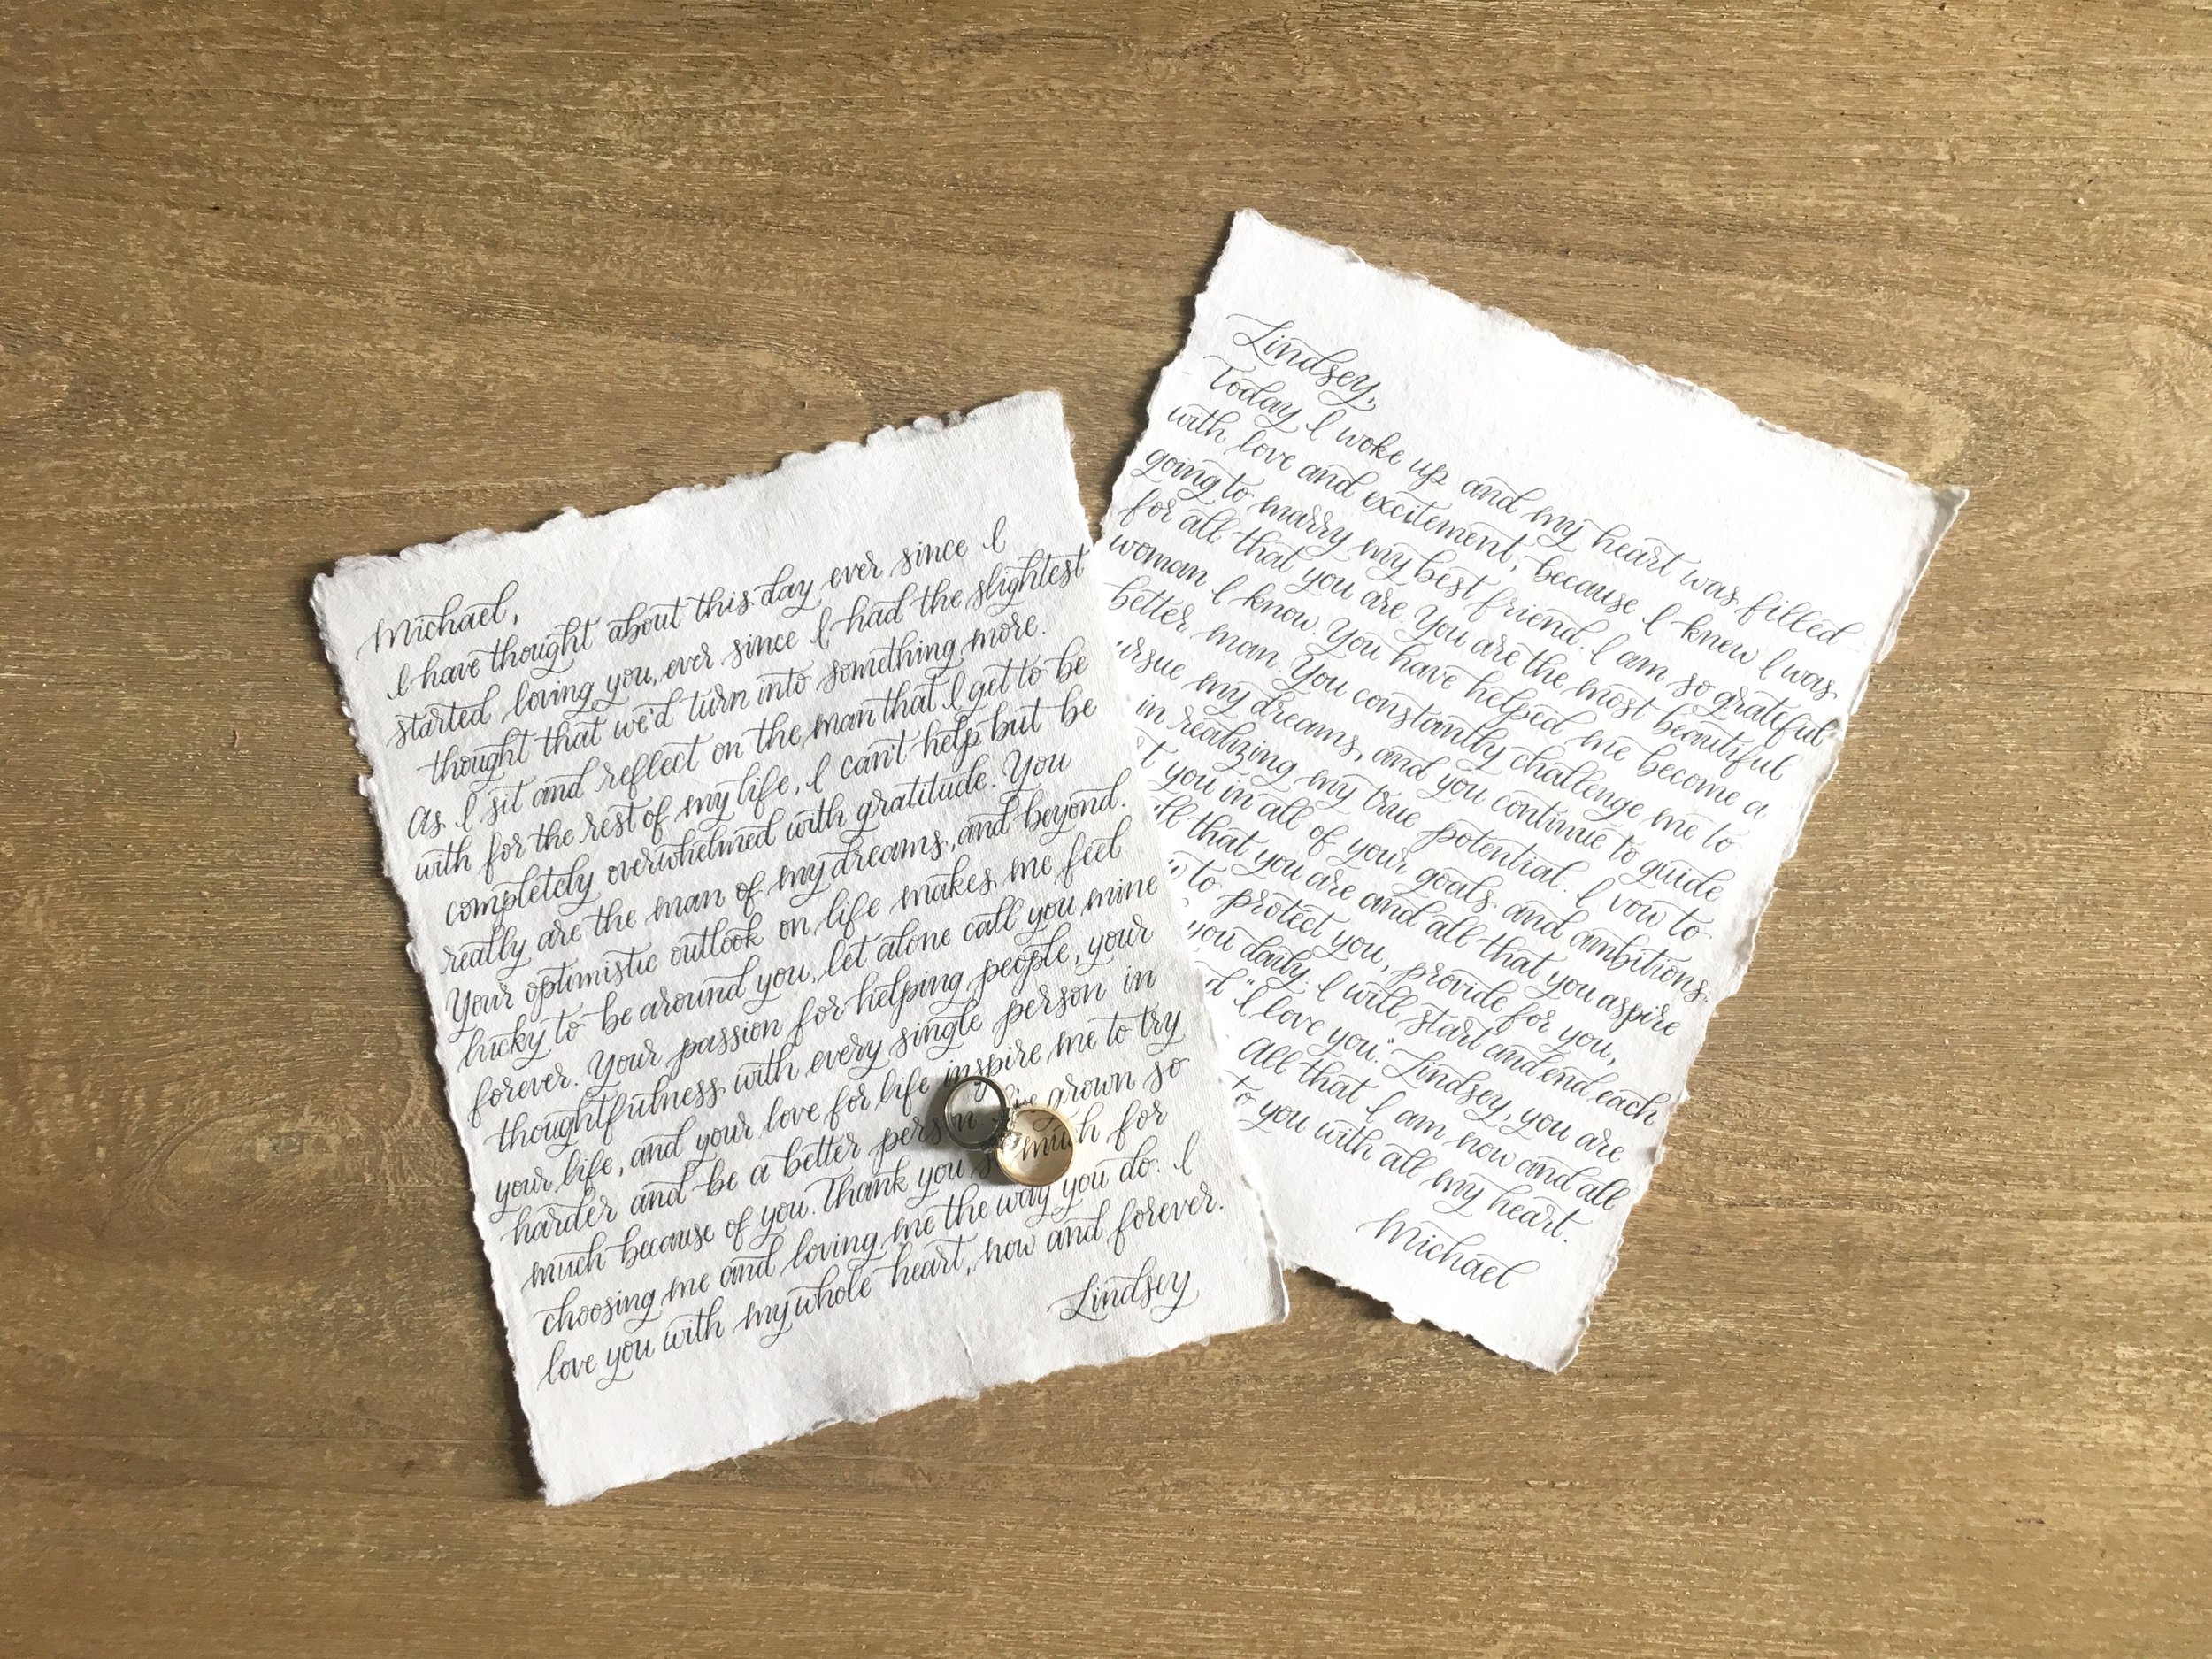 Michael,
I have thought about this day ever since I
started loving you, ever since I had the slightest
thought that we'd turn into something more.
As I sit and reflect on the man that I get to be
with for the rest of my life, I can't help but be
completely overwhelmed with gratitude. You
really are the man of my dreams, and beyond.
Your optimistic outlook on life makes me feel
lucky to be around you, let alone call you mine
forever. Your passion for helping people, your
thoughtfulness with every single person in
your life, and your love for life inspire me to try
harder and be a better person. grown so
much because of you. Thank you much for
choosing me and loving me the way you do. I
love you with my whole heart, now and forever.
Lindsey
Lindsey,
Today I woke up and my heart was filled
with love and excitement, because I knew I was
going to marry my best friend. I am so grateful
for all that you are. You are the most beautiful
woman I know. You have helped me become a
better man. You constantly challenge me to
my dreams, and you continue to guide
in realizing my true potential. I vow to
you in all of your goals and ambitions.
that you are and all that you aspire
to protect you, provide for you,
you daily. I will start and end each
"I love you." Lindsey, you are
All that I am now and all
to you with all my heart.
Michael